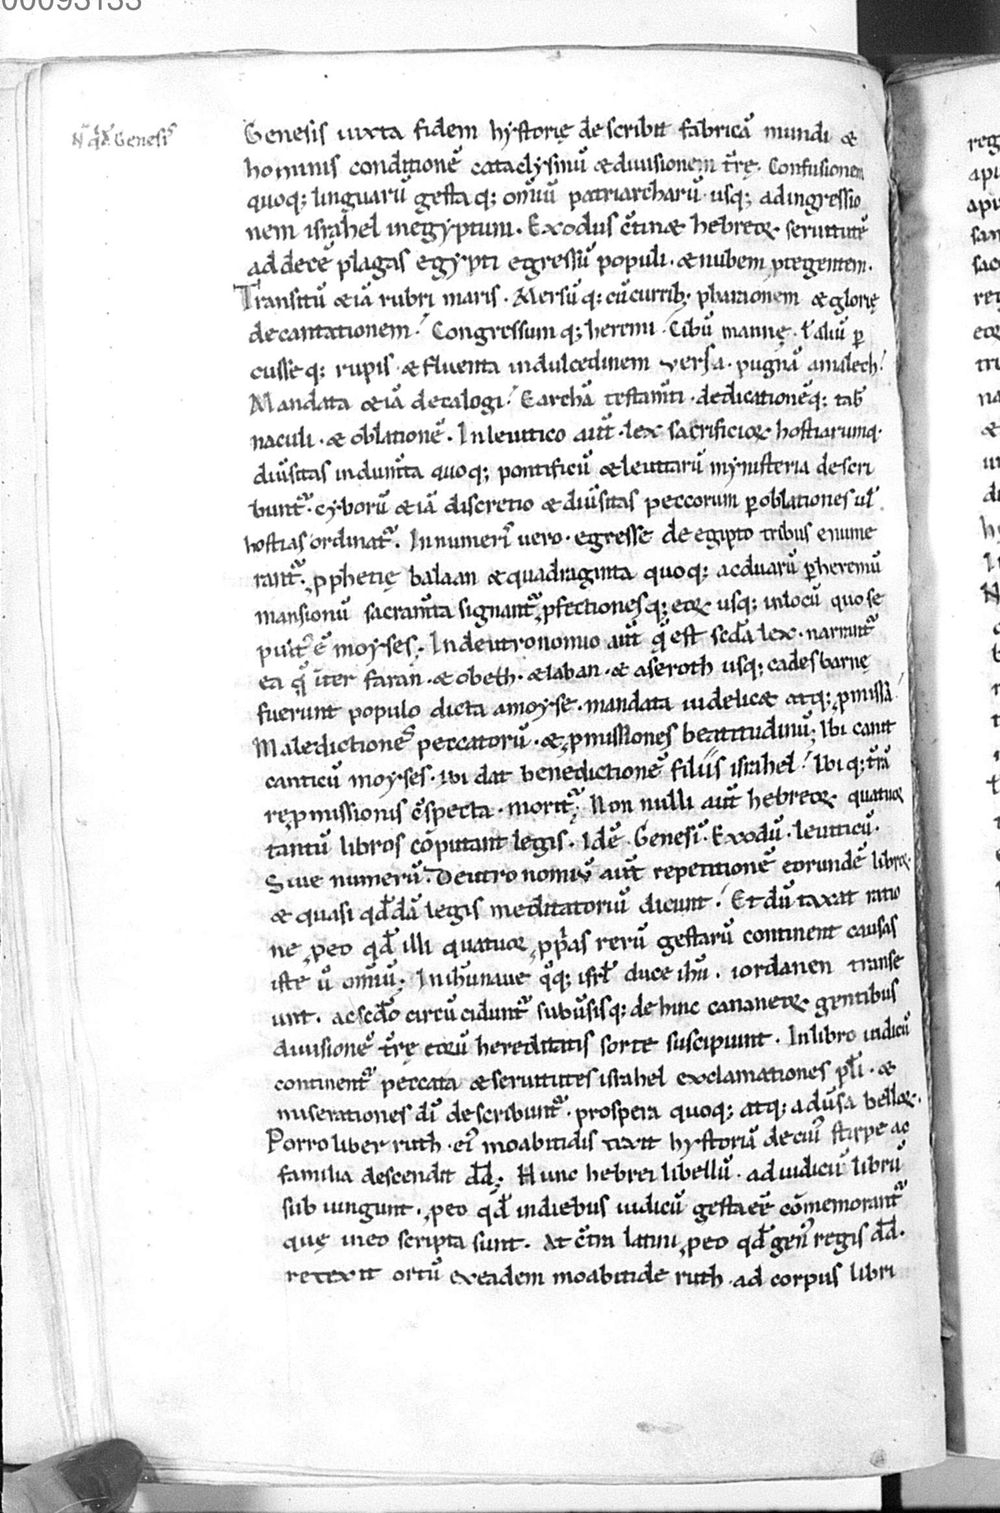 00093133
Genesis iuxta fidem hystorię describit fabricā mundi &
hominis conditionē cataclysmū & diuisionem t̄rę. Confusionem
quoq; linguarū gesta q; om̄iū patriarcharū usq; ad ingressio
nem israhel in egyptum. Exodus c̄tin& hebreoꝝ seruitutē
ad decē plagas egypti egressū populi. & nubem ꝓtegentem.
Transitū & iā rubri maris. Mersū q; cū currib; pharaonem & glorię
decantationem. Congressum q; heremi. Cibū mannę. l' aliū ꝑ
cusse q; rupis. & fluenta in dulcedinem uersa. pugnā amalech.
Mandata & iā decalogi. & archā testam̄ti. dedicationēq; tab̄
naculi. & oblationē. In leuitico aut̄. lex sacrificioꝝ hostiarumq.
diūsitas indum̄ta quoq; pontificū & leuitarū mynisteria descri
bunt᷑. cyborū & iā discretio & diūsitas peccorum ꝑ oblationes ul'
hostias ordinat᷑. In numeri uero. egresse de egipto tribus enume
rant᷑. ꝓphetię balaan & quadraginta quoq; ac duarū ꝑ heremū
mansionū sacram̄ta signant᷑ ꝓfectionesq; eoꝝ usq; in locū quo se
pult᷑ ē moyses. In deutronomio aut̄ q̄ est sc̄da lex. narrant᷑
ea q̄ inter faran. & obeth. & laban. & aseroth usq; cades barnę
fuerunt populo dicta a moyse. mandata uidelic& atq; ꝓmissa
Maledictiones peccatorū. & ꝓmissiones beatitudinū; Ibi canit
canticū moyses. ibi dat benedictionē filiis israhel. Ibi q; t̄rā
reꝓmissionis c̄specta. morit᷑. Non nulli aut̄ hebreoꝝ quatuor
tantū libros cōputant legis. Idē. Genesī. Exodū. leuiticū.
Siue numerū. Deutronomiū aut̄ repetitionē eorundē libroꝝ.
& quasi qd̄dā legis meditatoriū dicunt. Et dū taxat ratio
ne ꝓeo qd̄ illi quatuor ꝓp̄as rerū gestarū continent causas
iste ū om̄iū; In ihūnaue q̄q; isrl̄ duce ihū. iordanen transe
unt. ac sc̄do circū cidunt᷑ subūsisq; de hinc cananeoꝝ gentibus
diuisionē t̄rę eoꝝ hereditatis sorte suscipiunt. In libro iudicū
continent᷑ peccata & seruitutes israhel exclamationes pl̄i. &
miserationes dī describunt᷑. prospera quoq; atq; adūsa belloꝝ.
Porro liber ruth. eī moabitidis texit hystoriā de cuī stirpe ac
familia descendit dd̄; Hunc hebrei libellū. ad iudicū librū
sub iungunt. ꝓeo qd̄ in diebus iudicū gesta eē cōmemorant᷑
quę in eo scripta sunt. At c̄tra latini ꝓeo qd̄ gen᷒ regis dd̄.
retexit ortū ex eadem moabitide ruth. ad corpus libri